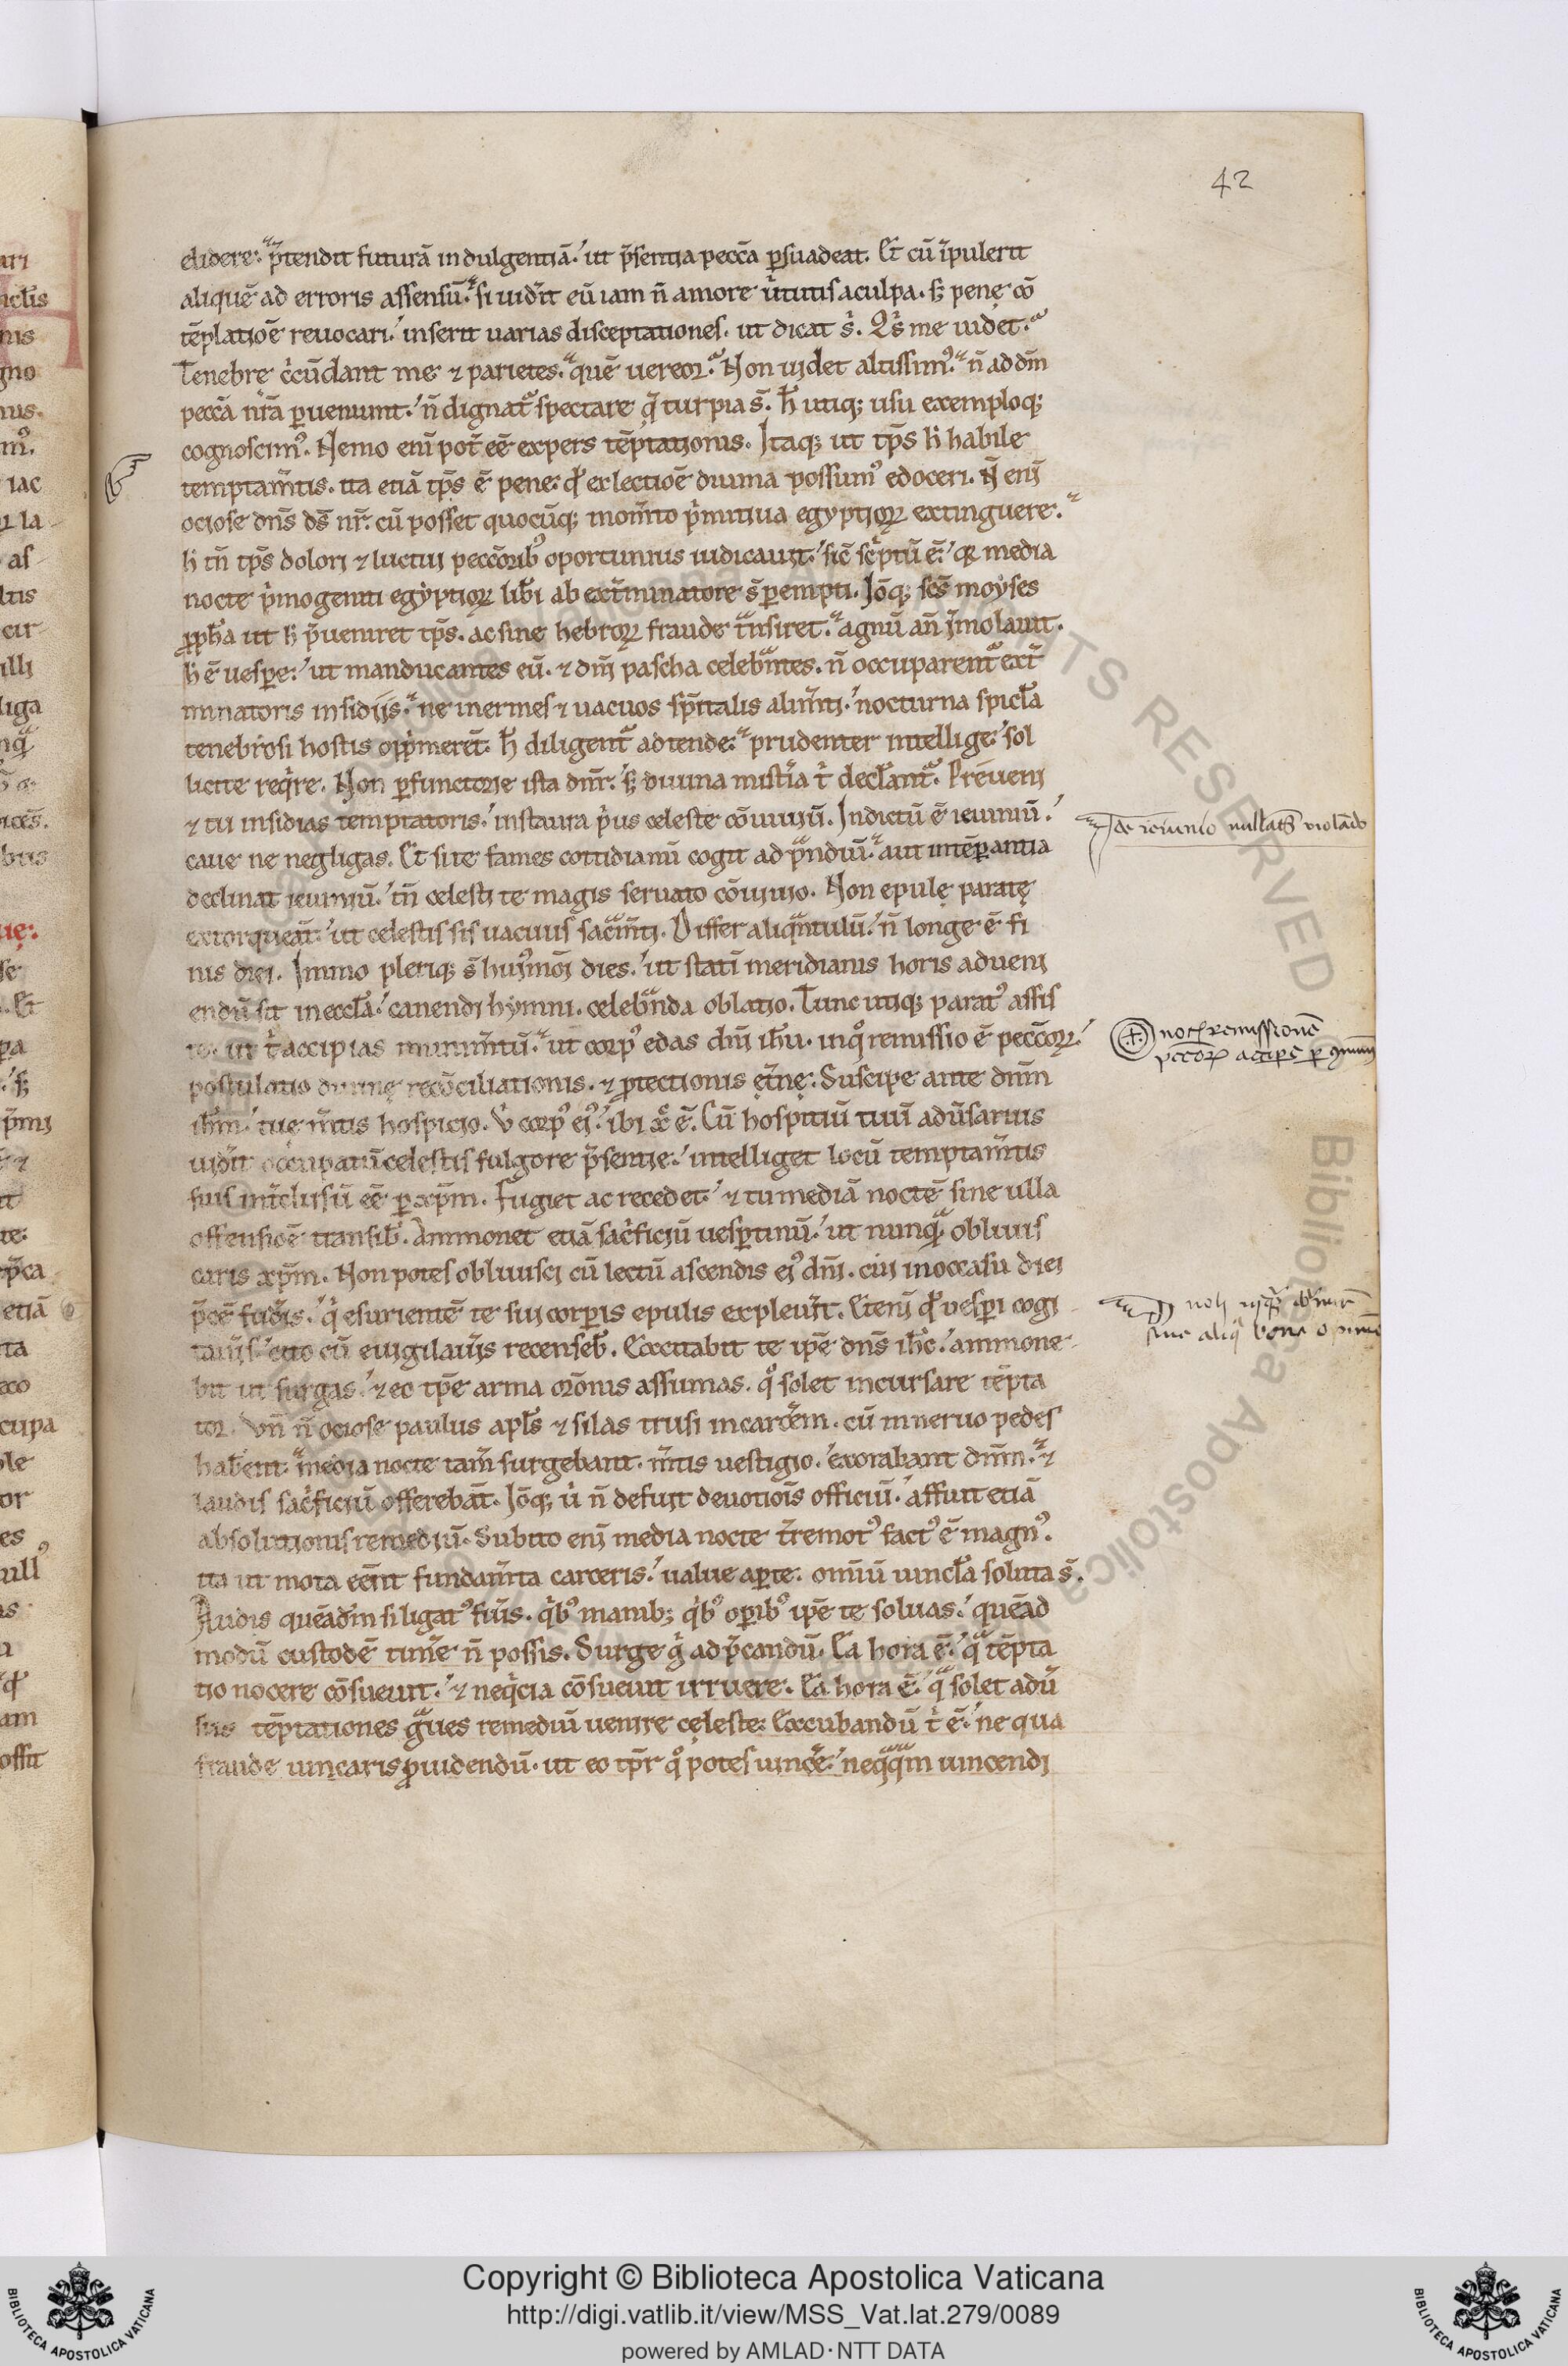 42
elidere. p̄tendit futurā indulgentiā. ut p̄sentia pecc̄a ꝑsuadeat. Et cū īpulerit
aliquē ad erroris assensū. si uid̄it eū iam n̄ amore u̓tutis a culpa. sꝫ penę cō
tēplatiōe reuocari. inserit uarias disceptationes. ut dicat s̓. Q̓s me uidet.
Tenebre c̓cūdant me ⁊ parietes. quē uereor. Non uidet altissimꝰ. n̄ ad dn̄m
pecc̄a nr̄a ꝑueniunt. n̄ dignat᷑ spectare q̄ turpia s̄. h̄ utiqꝫ usu exemploqꝫ
cognoscimꝰ. Nemo eni pot̄ eē expers tēptationis. Itaqꝫ ut tp̄s h̓ habile
temptam̄tis. ita etiā tp̄s ē pene. qđ ex lectiōe diuina possumꝰ edoceri. N̄ eni
ociose dn̄s ds̄ nr̄. cū posset quocūqꝫ mom̄to p̓mitiua egyptioꝝ extinguere.
h̓ tn̄ tp̄s dolori ⁊ luctui pecc̄oribꝰ oportunius iudicauit. sic̄ sc̓ptū ē. qr media
nocte p̓mogeniti egyptioꝝ lib̄i ab ext̄minatore s̄ ꝑempti. Iōqꝫ sc̄s moyses
ꝓph̄a ut h̓ p̄ueniret tp̄s. ac sine hebreoꝝ fraude tͣnsiret. agnū an̄ īmolauit.
h̓ ē uesꝑe. ut manducantes eū. ⁊ dn̄i pascha celebͣntes. n̄ occuparent᷑ ext̄
minatoris insidiis. ne inermes ⁊ uacuos sp̄italis alim̄ti. nocturna spicl̄a
tenebrosi hostis opp̓meret. h̄ diligent᷑ adtende. prudenter intellige. sol
licite req̓re. Non ꝑfunctorie ista dn̄r. sꝫ diuina mist̄ia t̓ decl̄ant᷑. Preueni
⁊ tu insidias temptatoris. instaura p̓us celeste cōuiuiū. Indictū ē ieiuniū.
caue ne negligas. Et si te fames cottidianū cogit ad pͣndiū. aut intēꝑantia
declinat ieiuniū. tn̄ celesti te magis seruato cōuiuio. Non epulę paratę
extorqueāt. ut celestis sis uacuus sacͣm̄ti. Differ aliqͣntulū. n̄ longe ē fi
nis diei. Immo pleriqꝫ s̄ huiꝰmōi dies. ut statī meridianis horis adueni
endū sit in eccl̄a. canendi hymni. celebͣnda oblatio. Tunc utiqꝫ paratꝰ assis
ut t̓ accipias munim̄tū. ut corpꝰ edas dn̄i ih̄u. in qͦ remissio ē pecc̄oꝝ.
postulatio diuinę recōciliationis. ⁊ ꝓtectionis ęt̄nę. Suscipe ante dn̄m
ih̄m. tue m̄tis hospicio. V̓ corpꝰ eiꝰ. ibi xp̄c ē. Cū hospitiū tuū adu̓sarius
uid̄it occupatū celestis fulgore p̄sentie. intelliget locū temptam̄tis
suis int̄clusū eē ꝑ xp̄m. Fugiet ac recedet. ⁊ tu mediā noctē sine ulla
offensiōe transib̓. Ammonet etiā sac̓ficiū uesꝑtinū. ut nunqͣ obliuis
caris xp̄m. Non potes obliuisci cū lectū ascendis eiꝰ dn̄i. cui in occasu diei
p̄cē fud̓is. q̓ esurientē te sui corꝑis epulis expleu̓it. Eteni qđ uesꝑi cogi
tau̓is. cito cū euigilau̓is recenseb̓. Excitabit te ip̄e dn̄s ih̄c. ammone
bit ut surgas. ⁊ eo tp̄e arma or̄onis assumas. qͦ solet incursare tēpta
tor. Vn̄ n̄ ociose paulus apl̄s ⁊ silas trusi in carc̄em. cū in neruo pedes
hab̄ent. media nocte tam̄ surgebant. m̄tis uestigio. exorabant dn̄m. ⁊
laudis sac̓ficiū offerebāt. Iōqꝫ u̓ n̄ defuit deuotiōis officiū. affuit etiā
absolutionis remediū. Subito eni media nocte t̄remotꝰ factꝰ ē magnꝰ.
ita ut mota eēnt fundam̄ta carceris. ualue aꝑte. omiū uincl̄a soluta s̄.
Audis quēad̄m si ligatꝰ fu̓is. q̓bꝰ manibꝫ q̓bꝰ oꝑibꝰ ip̄e te soluas. quēad
modū custodē tim̄e n̄ possis. Surge g̓ ad p̄candū. Ea hora ē. qͣ tēpta
tio nocere cōsueuit. ⁊ neq̓cia cōsueuit irruere. Ea hora ē. qͣ solet adu̓
sus tēptationes gͣues remediū uenire cęleste. Excubandū t̓ ē. ne qua
fraude uincaris ꝓuidendū. ut eo tp̄r qͦ potes uinc̄e. neqͣqͣm uincendi
de ieiunio nullat̄s violādo
not remissionē
pecc̄oꝝ accipe ꝑ
noli
sine aliq bona
Copyright © Biblioteca Apostolica Vaticana
http://digi.vatlib.it/view/MSS_Vat.lat.279/0089
powered by AMLAD·NTT DATA
BIBLIOTECA APOSTOLICA VATICANA
BIBLIOTECA APOSTOLICA VATICANA